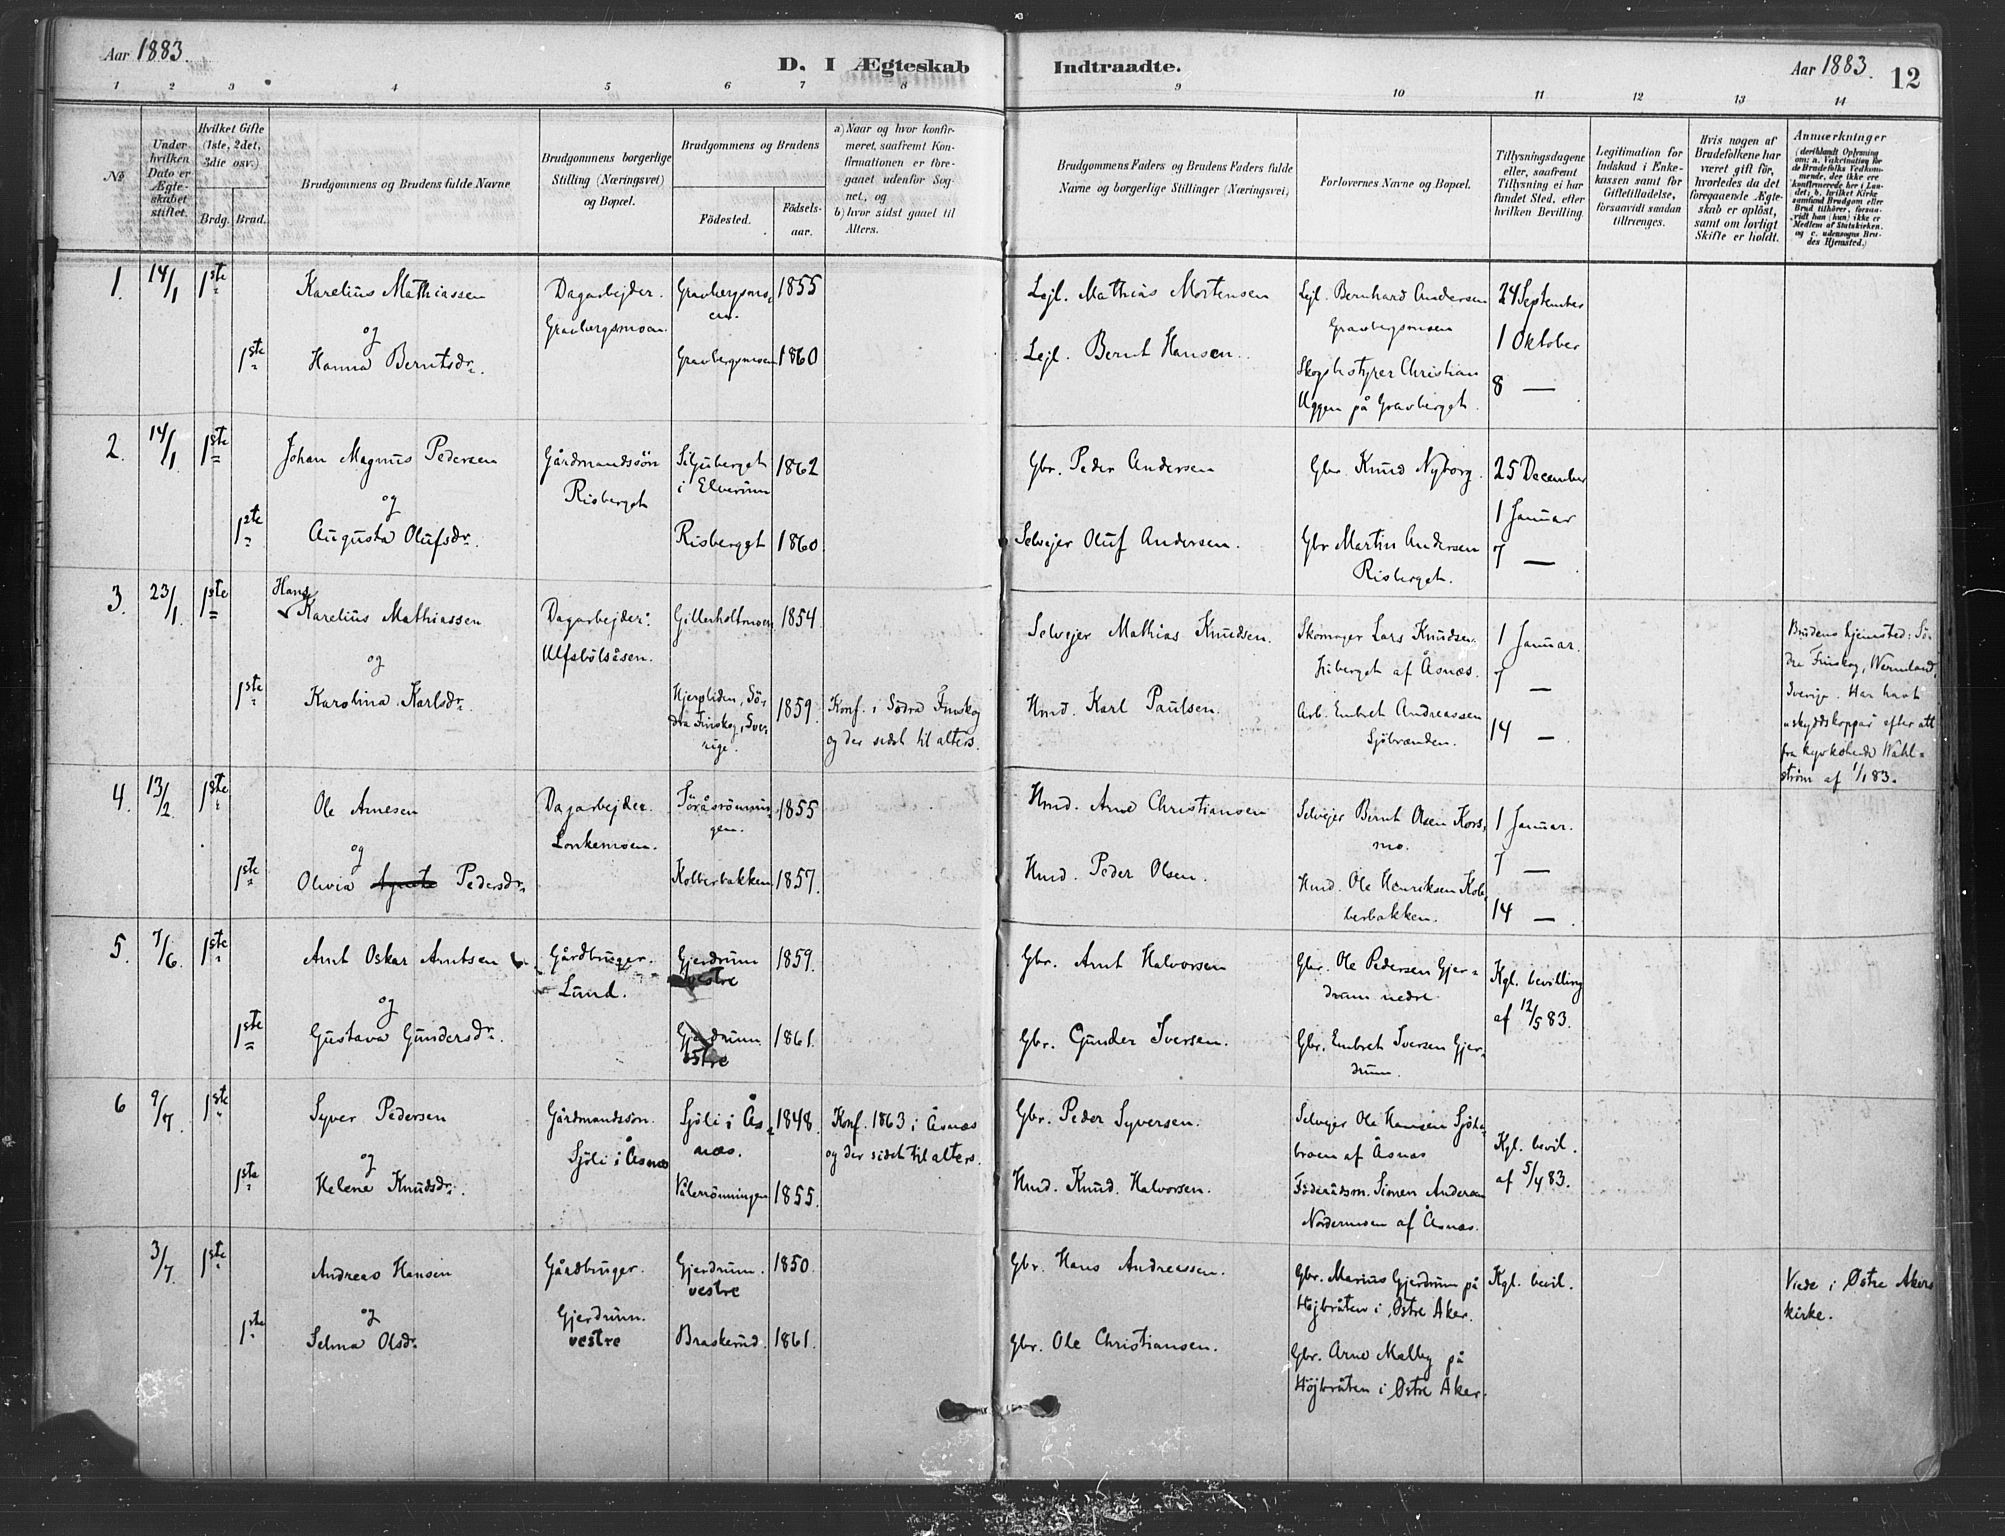 Aar 1883.
D. I Ægteskab Indtraadte.
Aar 1883. 12
1 2 3 4 5 6 7 8 9 10 11 12 13 14
No
Under hvilken Dato er Ægteskabet stiftet.
Hvilket Gifte (1ste, 2det, 3die osv.)
Brdg. Brud.
Brudgommens og Brudens fulde Navne
Brudgommens borgerlige Stilling (Næringsvei) og Bopæl.
Brudgommens og Brudens
Födested.
Födselsaar.
a) Naar og hvor konfirmeret, saafremt Konfirmationen er foregaaet udenfor Sognet, og
b) hvor sidst gaaet til Alters.
Brudgommens Faders og Brudens Faders fulde Navne og borgerlige Stillinger (Næringsvei)
Forlovernes Navne og Bopæl.
Tillysningsdagene eller, saafremt Tillysning ei har fundet Sted, efter hvilken Bevilling.
Legitimation for Indskud i Enkekassen samt for Giftetilladelse, forsaavidt saadan tiltrænges.
Hvis nogen af Brudefolkene har været gift för, hvorledes da det foregaaende Ægteskab er oplöst, samt om lovligt Skifte er holdt.
Anmærkninger
(deriblandt Oplysning om: a. Vakcination for de Brudefolks Vedkommende, der ikke ere konfirmerede her i Landet; b. hvilket Kirkesamfund Brudgom eller Brud tilhörer, forsaavidt han (hun) ikke er Medlem af Statskirken, og c. udensogns Brudes Hjemsted.)
1. 14/1 1ste
Karelius Mathiassen
og
1ste Hanna Berntsdr.
Dagarbejder.
Gravbergsmoen.
Gravbergsmoen. 1855
Gravbergsmoen 1860
Lejl. Mathias Mortensen
Lejl. Bernt Hansen.
Lejl. Bernhard Andersen
Gravbergsmoen
Skogbestyrer Christian
Uggen på Gravberget.
24 September
1 Oktober
8 —
2. 14/1 1ste
Johan Magnus Pedersen
og
1ste Augusta Olufsdr.
Gårdmandssön
Risberget
Siljuberget
i Elverum 1862
Risberget 1860
Gbr. Peder Andersen
Selvejer Oluf Andersen.
Gbr. Knud Nyborg.
Gbr Martin Andersen
Risberget.
25 December
1 Januar
7 —
3. 23/1 1ste
Hans
Karelius Mathiassen
og
1ste Karolina Karlsdr.
Dagarbejder.
Ulfsbölsåsen.
Gillerholtmoen 1854
Hjerpliden, Södra Finskog, Sverige. 1859.
Konf. i Södra Finskog
og der sidst til alters.
Selvejer Mathias Knudsen.
Hmd. Karl Paulsen.
Skomager Lars Knudsen
af Åsnæs.
Arb. Embret Andreassen
Sjöbranden.
1 Januar.
7 —
14 —
Brudens hjemsted: Södra Finskog, Wermland, Sverige. Har havt
skyddskoppar efter att
fra kyrkoherde Wahlström af 1/1 83.
4. 13/2 1ste
Ole Arnesen
og
1ste Olivia Pedersdr.
Dagarbejder.
Lonkemoen.
Töråsrönningen. 1855
Kolberbakken 1857.
Hmd. Arne Christiansen
Hmd. Peder Olsen.
Selvejer Bernt Olsen Korsmo.
Hmd. Ole Henriksen Kolberbakken.
1 Januar.
7 —
14 —
5. 7/6. 1ste
Arnt Oskar Arntsen
og
1ste Gustava Gundersdr.
Gårdbruger.
Lund.
Gjerdrum
vestre 1859.
Gjerdrum
östre 1861.
Gbr. Arnt Halvorsen
Gbr. Gunder Iversen.
Gbr. Ole Pedersen Gjerdrum nedre.
Gbr. Embret Iversen Gjerdrum.
Kgl. bevilling
af 12/5 83.
6 9/7. 1ste
Syver Pedersen
og
1ste Helene Knudsdr.
Gårdmandssön.
Sjöli i Åsnæs
Sjöli i Åsnæs. 1848.
Vålerrönningen 1855.
Konf. 1863 i Åsnæs
og der sidst til alters.
Gbr. Peder Syversen.
Hmd. Knud Halvorsen.
Selvejer Ole Hansen
af Åsnæs
Föderådsm. Simen Andersen
Nordermoen af Åsnæs.
Kgl. bevil.
af 5/4 83.
3/7. 1ste
Andreas Hansen
og
1ste Selma Olsdr.
Gårdbruger.
Gjerdrum.
vestre
Gjerdrum.
vestre 1850.
Braskerud 1861.
Gbr. Hans Andreassen.
Gbr. Ole Christiansen.
Gbr. Marius Gjerdrum på
Höjbråten i Østre Aker.
Gbr. Arne Malby på
Höjbråten i Østre Aker.
Kgl. bevil.
Viede i Østre Akers
kirke.